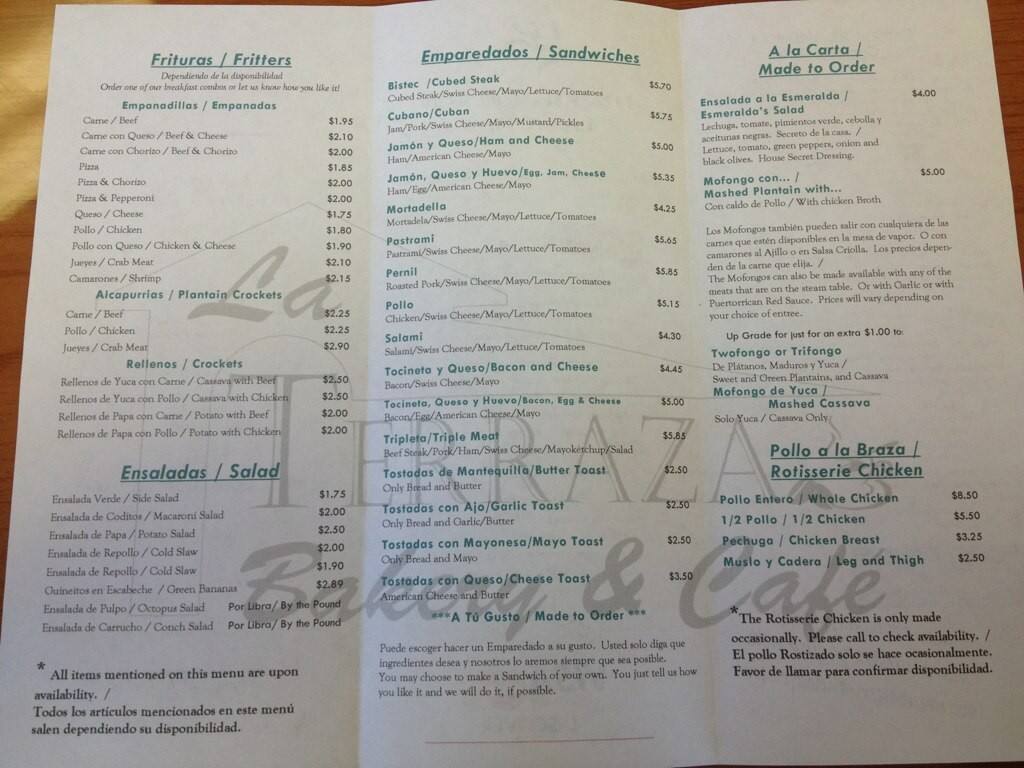 Frituras / Fritters
Dependiendo de la disponibilidad
Order one of our breakfast combos or let us know how you like it!
Empanadillas / Empanadas
Carne / Beef $1.95
Carne con Queso / Beef & Cheese $2.10
Carne con Chorizo / Beef & Chorizo $2.00
Pizza $1.85
Pizza & Chorizo $2.00
Pizza & Pepperoni $2.00
Queso / Cheese $1.75
Pollo / Chicken $1.80
Pollo con Queso / Chicken & Cheese $1.90
Jueyes / Crab Meat $2.10
Camarones / Shrimp $2.15
Alcapurrias / Plantain Crockets
Carne / Beef $2.25
Pollo / Chicken $2.25
Jueyes / Crab Meat $2.90
Rellenos / Crockets
Rellenos de Yuca con Carne / Cassava with Beef $2.50
Rellenos de Yuca con Pollo / Cassava with Chicken $2.50
Rellenos de Papa con Carne / Potato with Beef $2.00
Rellenos de Papa con Pollo / Potato with Chicken $2.00
Ensaladas / Salad
Ensalada Verde / Side Salad $1.75
Ensalada de Coditos / Macaroni Salad $2.00
Ensalada de Papa / Potato Salad $2.50
Ensalada de Repollo / Cold Slaw $2.00
Ensalada de Repollo / Cold Slaw $1.90
Guineitos en Escabeche / Green Bananas $2.89
Ensalada de Pulpo / Octopus Salad Por Libra/ By the Pound
Ensalada de Carrucho / Conch Salad Por Libra/ By the Pound
* All items mentioned on this menu are upon
availability. /
Todos los artículos mencionados en este menú
salen dependiendo su disponibilidad.
Emparedados / Sandwiches
Bistec /Cubed Steak $5.70
Cubed Steak/Swiss Cheese/Mayo/Lettuce/Tomatoes
Cubano/Cuban $5.75
Jam/Pork/Swiss Cheese/Mayo/Mustard/Pickles
Jamón y Queso/Ham and Cheese $5.00
Ham/American Cheese/Mayo
Jamón, Queso y Huevo/Egg, Jam, Cheese $5.35
Ham/Egg/American Cheese/Mayo
Mortadella $4.25
Mortadela/Swiss Cheese/Mayo/Lettuce/Tomatoes
Pastrami $5.65
Pastrami/Swiss Cheese/Mayo/Lettuce/Tomatoes
Pernil $5.85
Roasted Pork/Swiss Cheese/Mayo/Lettuce/Tomatoes
Pollo $5.15
Chicken/Swiss Cheese/Mayo/Lettuce/Tomatoes
Salami $4.30
Salami/Swiss Cheese/Mayo/Lettuce/Tomatoes
Tocineta y Queso/Bacon and Cheese $4.45
Bacon/Swiss Cheese/Mayo
Tocineta, Queso y Huevo/Bacon, Egg & Cheese $5.00
Bacon/Egg/American Cheese/Mayo
Tripleta/Triple Meat $5.85
Beef Steak/Pork/Ham/Swiss Cheese/Mayoketchup/Salad
Tostadas de Mantequilla/Butter Toast $2.50
Only Bread and Butter
Tostadas con Ajo/Garlic Toast $2.50
Only Bread and Garlic/Butter
Tostadas con Mayonesa/Mayo Toast $2.50
Only Bread and Mayo
Tostadas con Queso/Cheese Toast $3.50
American Cheese and Butter
***A Tú Gusto / Made to Order ***
Puede escoger hacer un Emparedado a su gusto. Usted solo diga que
ingredientes desea y nosotros lo aremos siempre que sea posible.
You may choose to make a Sandwich of your own. You just tell us how
you like it and we will do it, if possible.
A la Carta /
Made to Order
Ensalada a la Esmeralda / $4.00
Esmeralda's Salad
Lechuga, tomate, pimientos verde, cebolla y
aceitunas negras. Secreto de la casa. /
Lettuce, tomato, green peppers, onion and
black olives. House Secret Dressing.
Mofongo con... / $5.00
Mashed Plantain with...
Con caldo de Pollo / With chicken Broth
Los Mofongos también pueden salir con cualquiera de las
carnes que estén disponibles en la mesa de vapor. O con
camarones al Ajillo o en Salsa Criolla. Los precios depen-
den de la carne que elija. /
The Mofongos can also be made available with any of the
meats that are on the steam table. Or with Garlic or with
Puertorrican Red Sauce. Prices will vary depending on
your choice of entree.
Up Grade for just for an extra $1.00 to:
Twofongo or Trifongo
De Plátanos, Maduros y Yuca /
Sweet and Green Plantains, and Cassava
Mofongo de Yuca /
Mashed Cassava
Solo Yuca / Cassava Only
Pollo a la Braza /
Rotisserie Chicken
Pollo Entero / Whole Chicken $8.50
1/2 Pollo / 1/2 Chicken $5.50
Pechuga / Chicken Breast $3.25
Muslo y Cadera / Leg and Thigh $2.50
*The Rotisserie Chicken is only made
occasionally. Please call to check availability. /
El pollo Rostizado solo se hace ocasionalmente.
Favor de llamar para confirmar disponibilidad.
La
Terraza
Bakery & Café